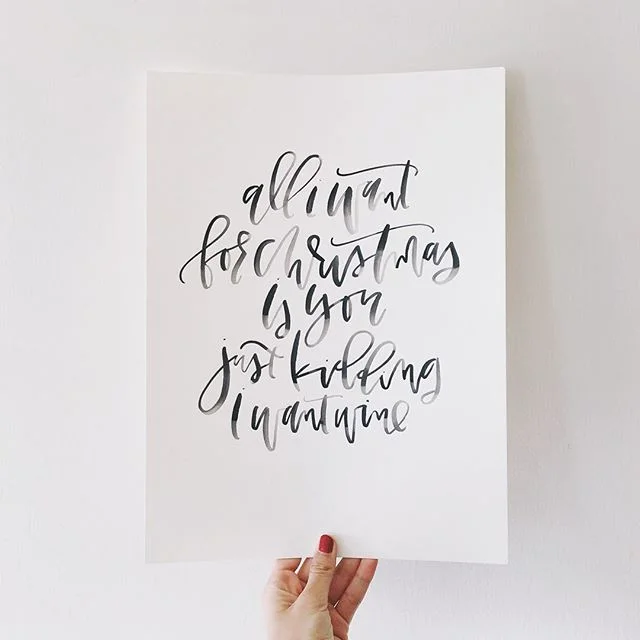 all i want
for christmas
is you
just kidding
i want wine